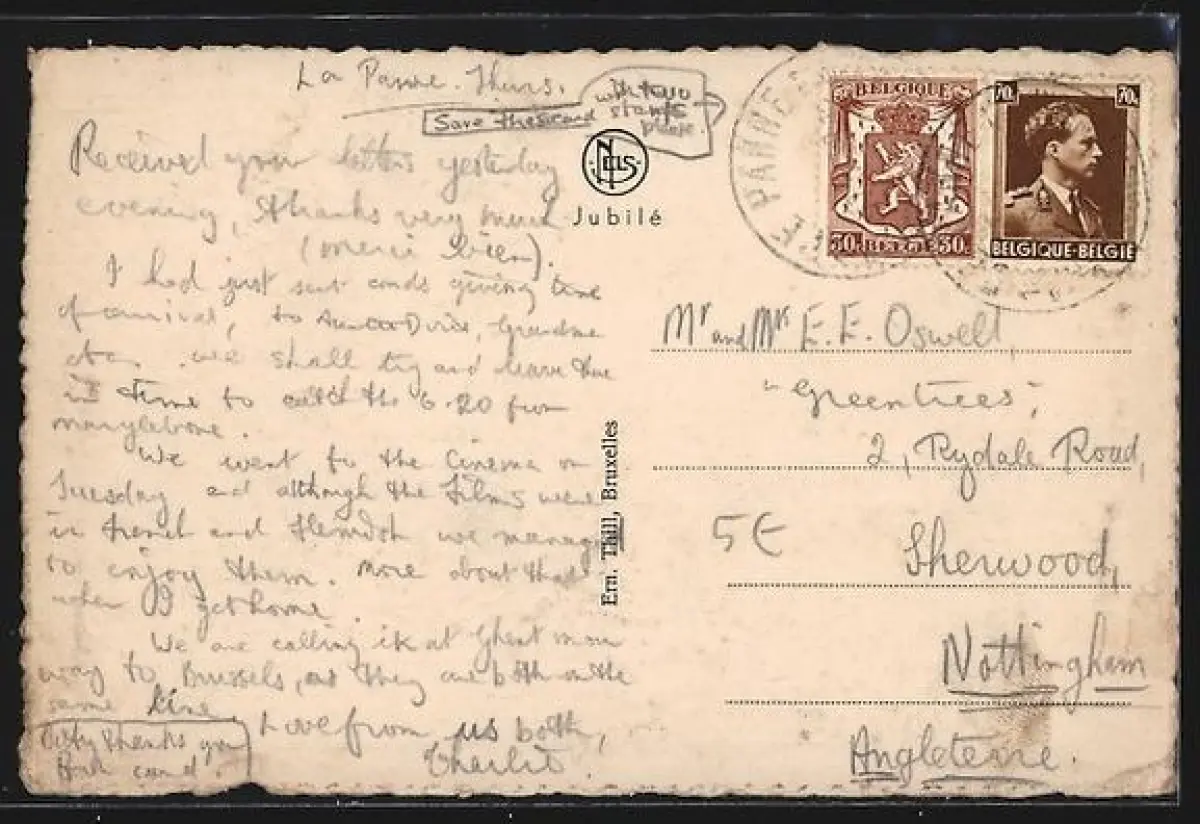 La Panne. Thurs.
Save this card
with two
stamps
please.
Received your letters yesterday
evening, thanks very much
(merci bien).
I had just sent cards giving time
of arrival, to Auntie Grandma
etc. we shall try and leave
in time to catch the 6.20 from
marylebone.
We went to the Cinema on
Tuesday and although the films were
in French and Flemish we managed
to enjoy them. More about that
when I get home.
We are calling at Ghent on our
way to Brussels, as they are both on the
same line.
Love from us both,
Charlie.
thanks you
card.
NELS
Jubilé
Ern. Thill, Bruxelles
DE PANNE
BELGIQUE
30c BELGIË 30c
70c 70c
BELGIQUE-BELGIE
Mr and Mrs E. E. Oswell,
"Greentrees",
2, Rydale Road,
5€
Sherwood,
Nottingham
Angleterre.